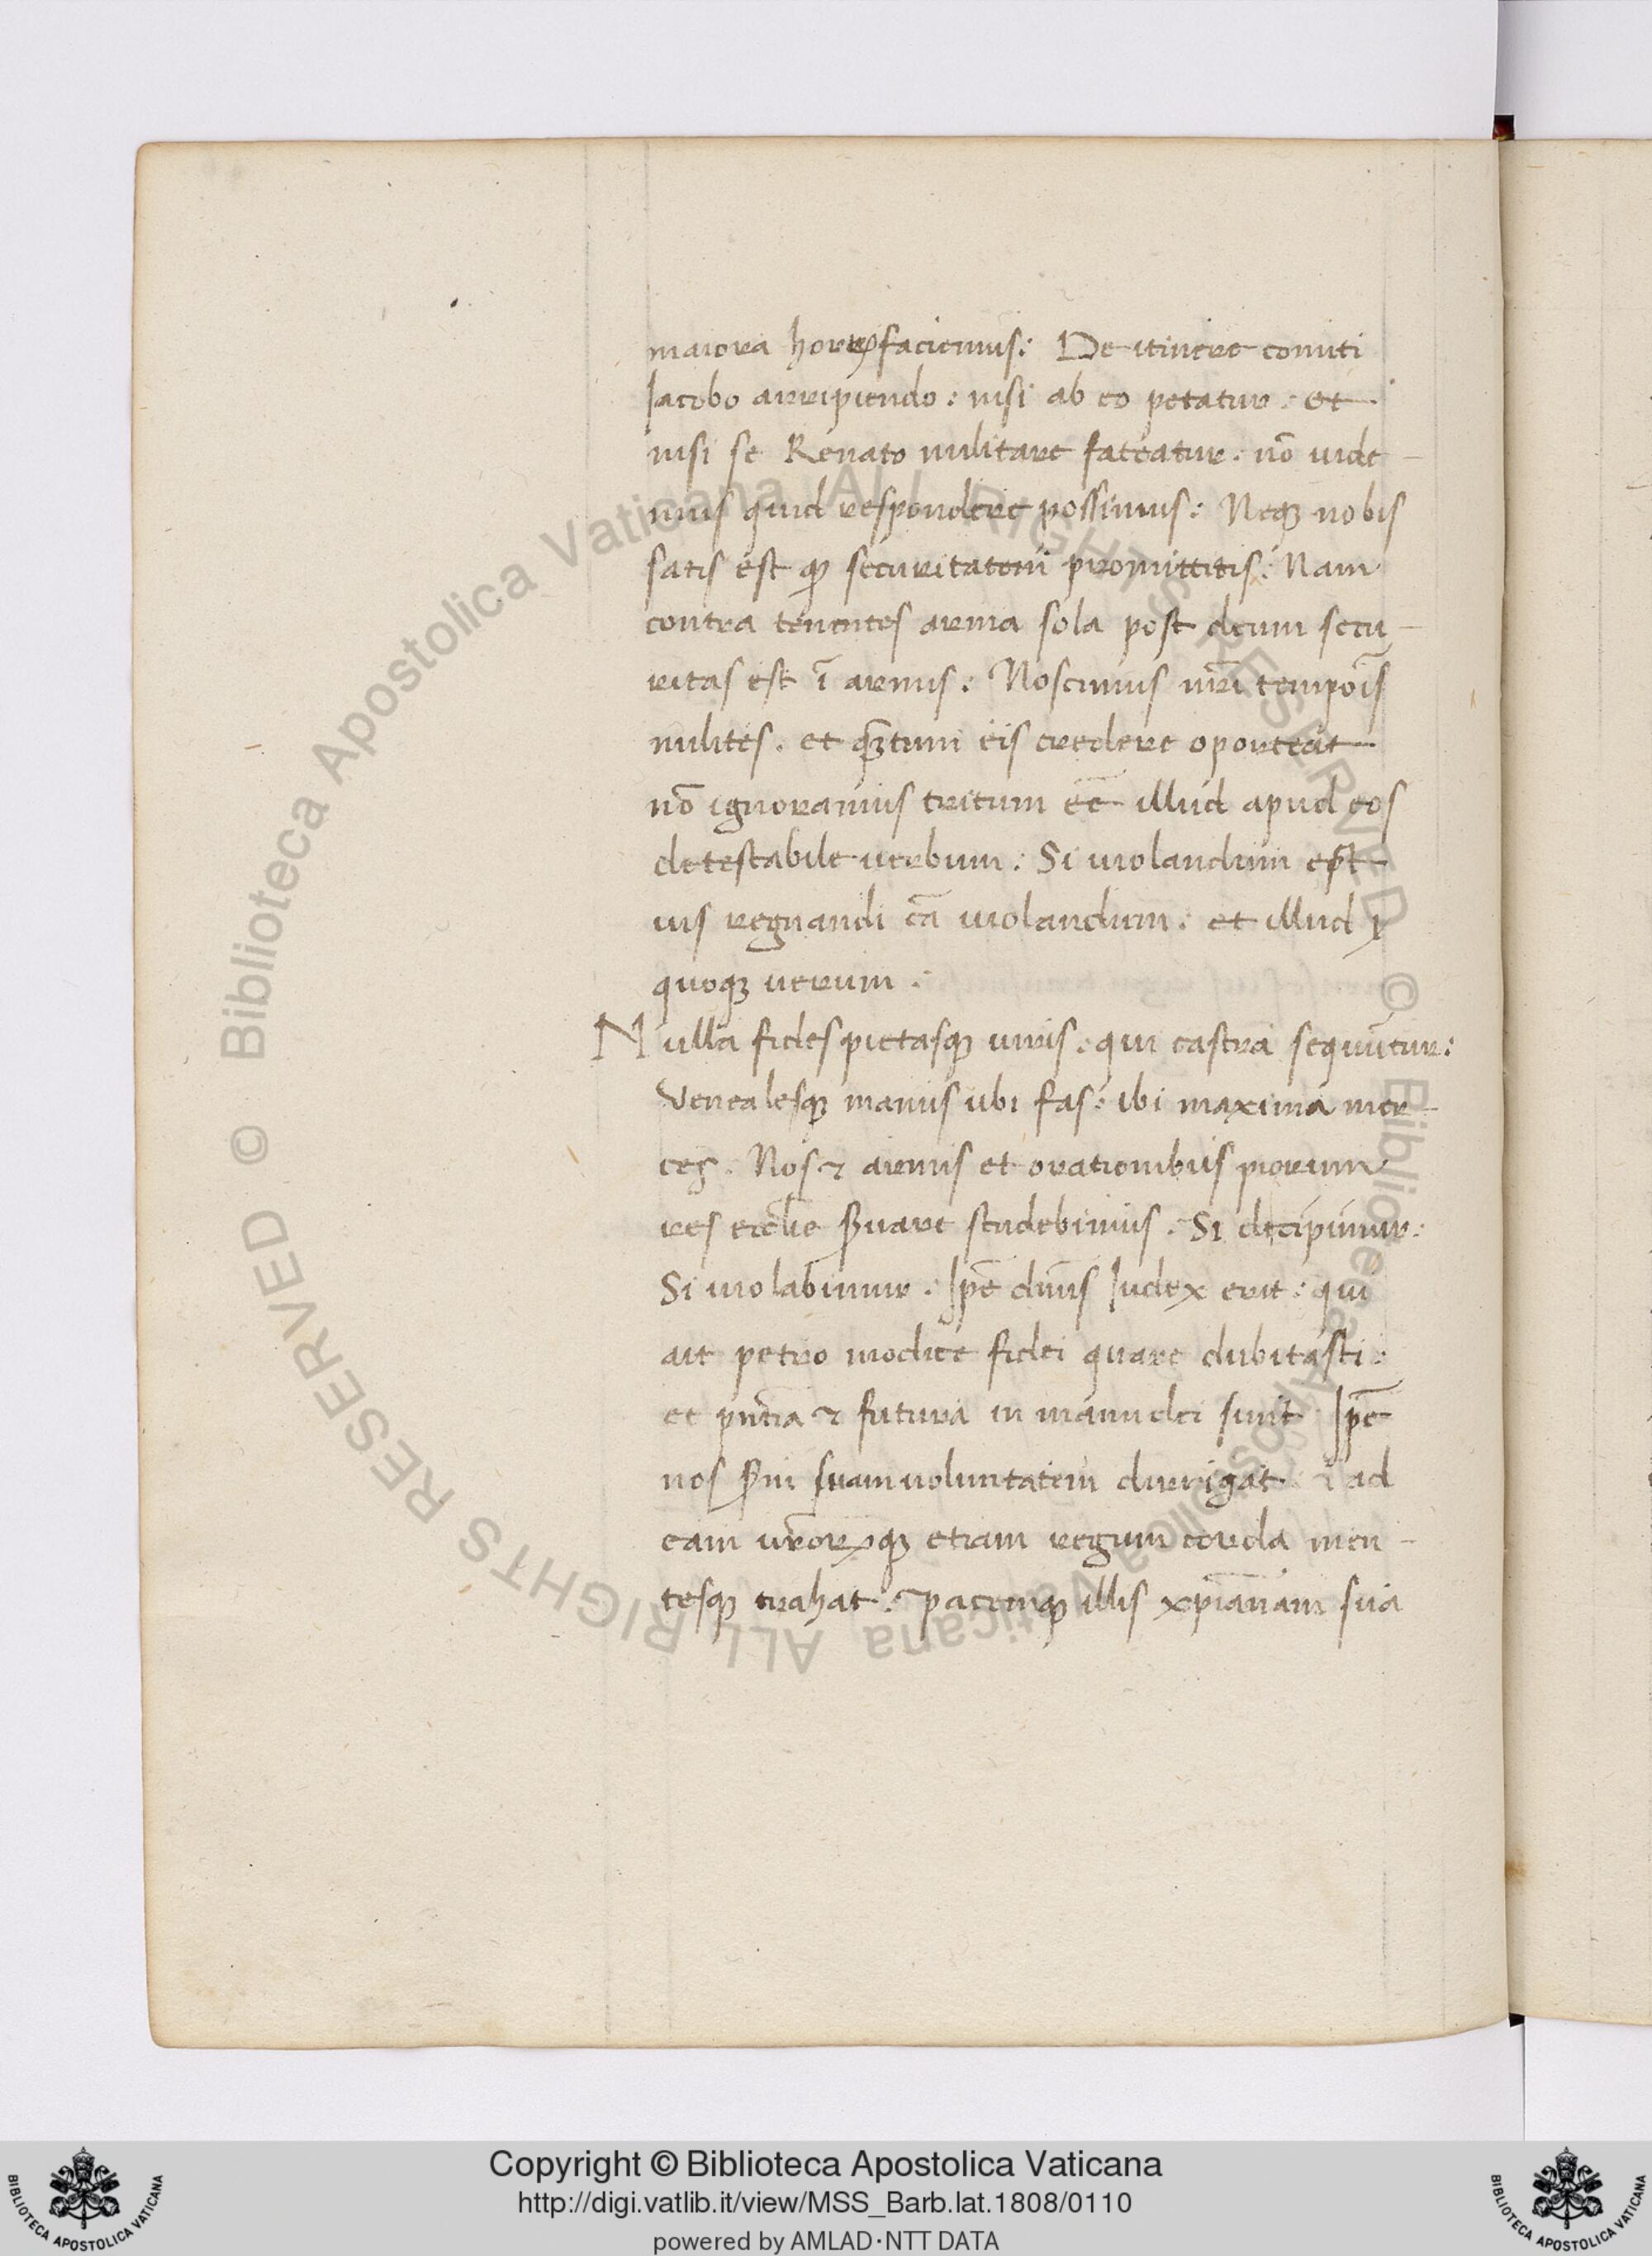 maiora horꝝ faciemus: De itinere comiti
Iacobo arripiendo: nisi ab eo petatur: et
nisi se Renato militare fateatur. nō uide-
mus quid respondere possimus: Neqꝫ nobis
satis est ꝙ securitatem promittitis: Nam
contra tenentes arma sola post deum secu-
ritas est ī armis: Noscimus nr̄i tempoīs
milites. et qꝫtum eis credere oporteat
nō ignoramus tritum eē illud apud eos
detestabile uerbum: Si uiolandum est
ius regnandi cā uiolandum: et illud
quoqꝫ uerum:
Nulla fides pietasqꝫ uiris: qui castra sequūtur:
Venalesqꝫ manus ubi fas: ibi maxima mer-
ces. Nos ⁊ armis et orationibus piorum
res eccl̄ie ꝑuare studebimus. Si decipimur:
Si uiolabimur: Ipē dn̄us Iudex erit: qui
ait petro modice fidei quare dubitasti:
et pn̄tia ⁊ futura in manu dei sunt. Ipē
nos ꝑm suam uoluntatem dirrigat. ⁊ ad
eam ur̄orꝝqꝫ etiam regum corda men-
tesqꝫ trahat: pacemqꝫ illis xp̄ianam sua
Copyright © Biblioteca Apostolica Vaticana
http://digi.vatlib.it/view/MSS_Barb.lat.1808/0110
powered by AMLAD·NTT DATA
BIBLIOTECA APOSTOLICA VATICANA
BIBLIOTECA APOSTOLICA VATICANA
© Biblioteca Apostolica Vaticana ALL RIGHTS RESERVED © Biblioteca Apostolica Vaticana ALL RIGHTS RESERVED